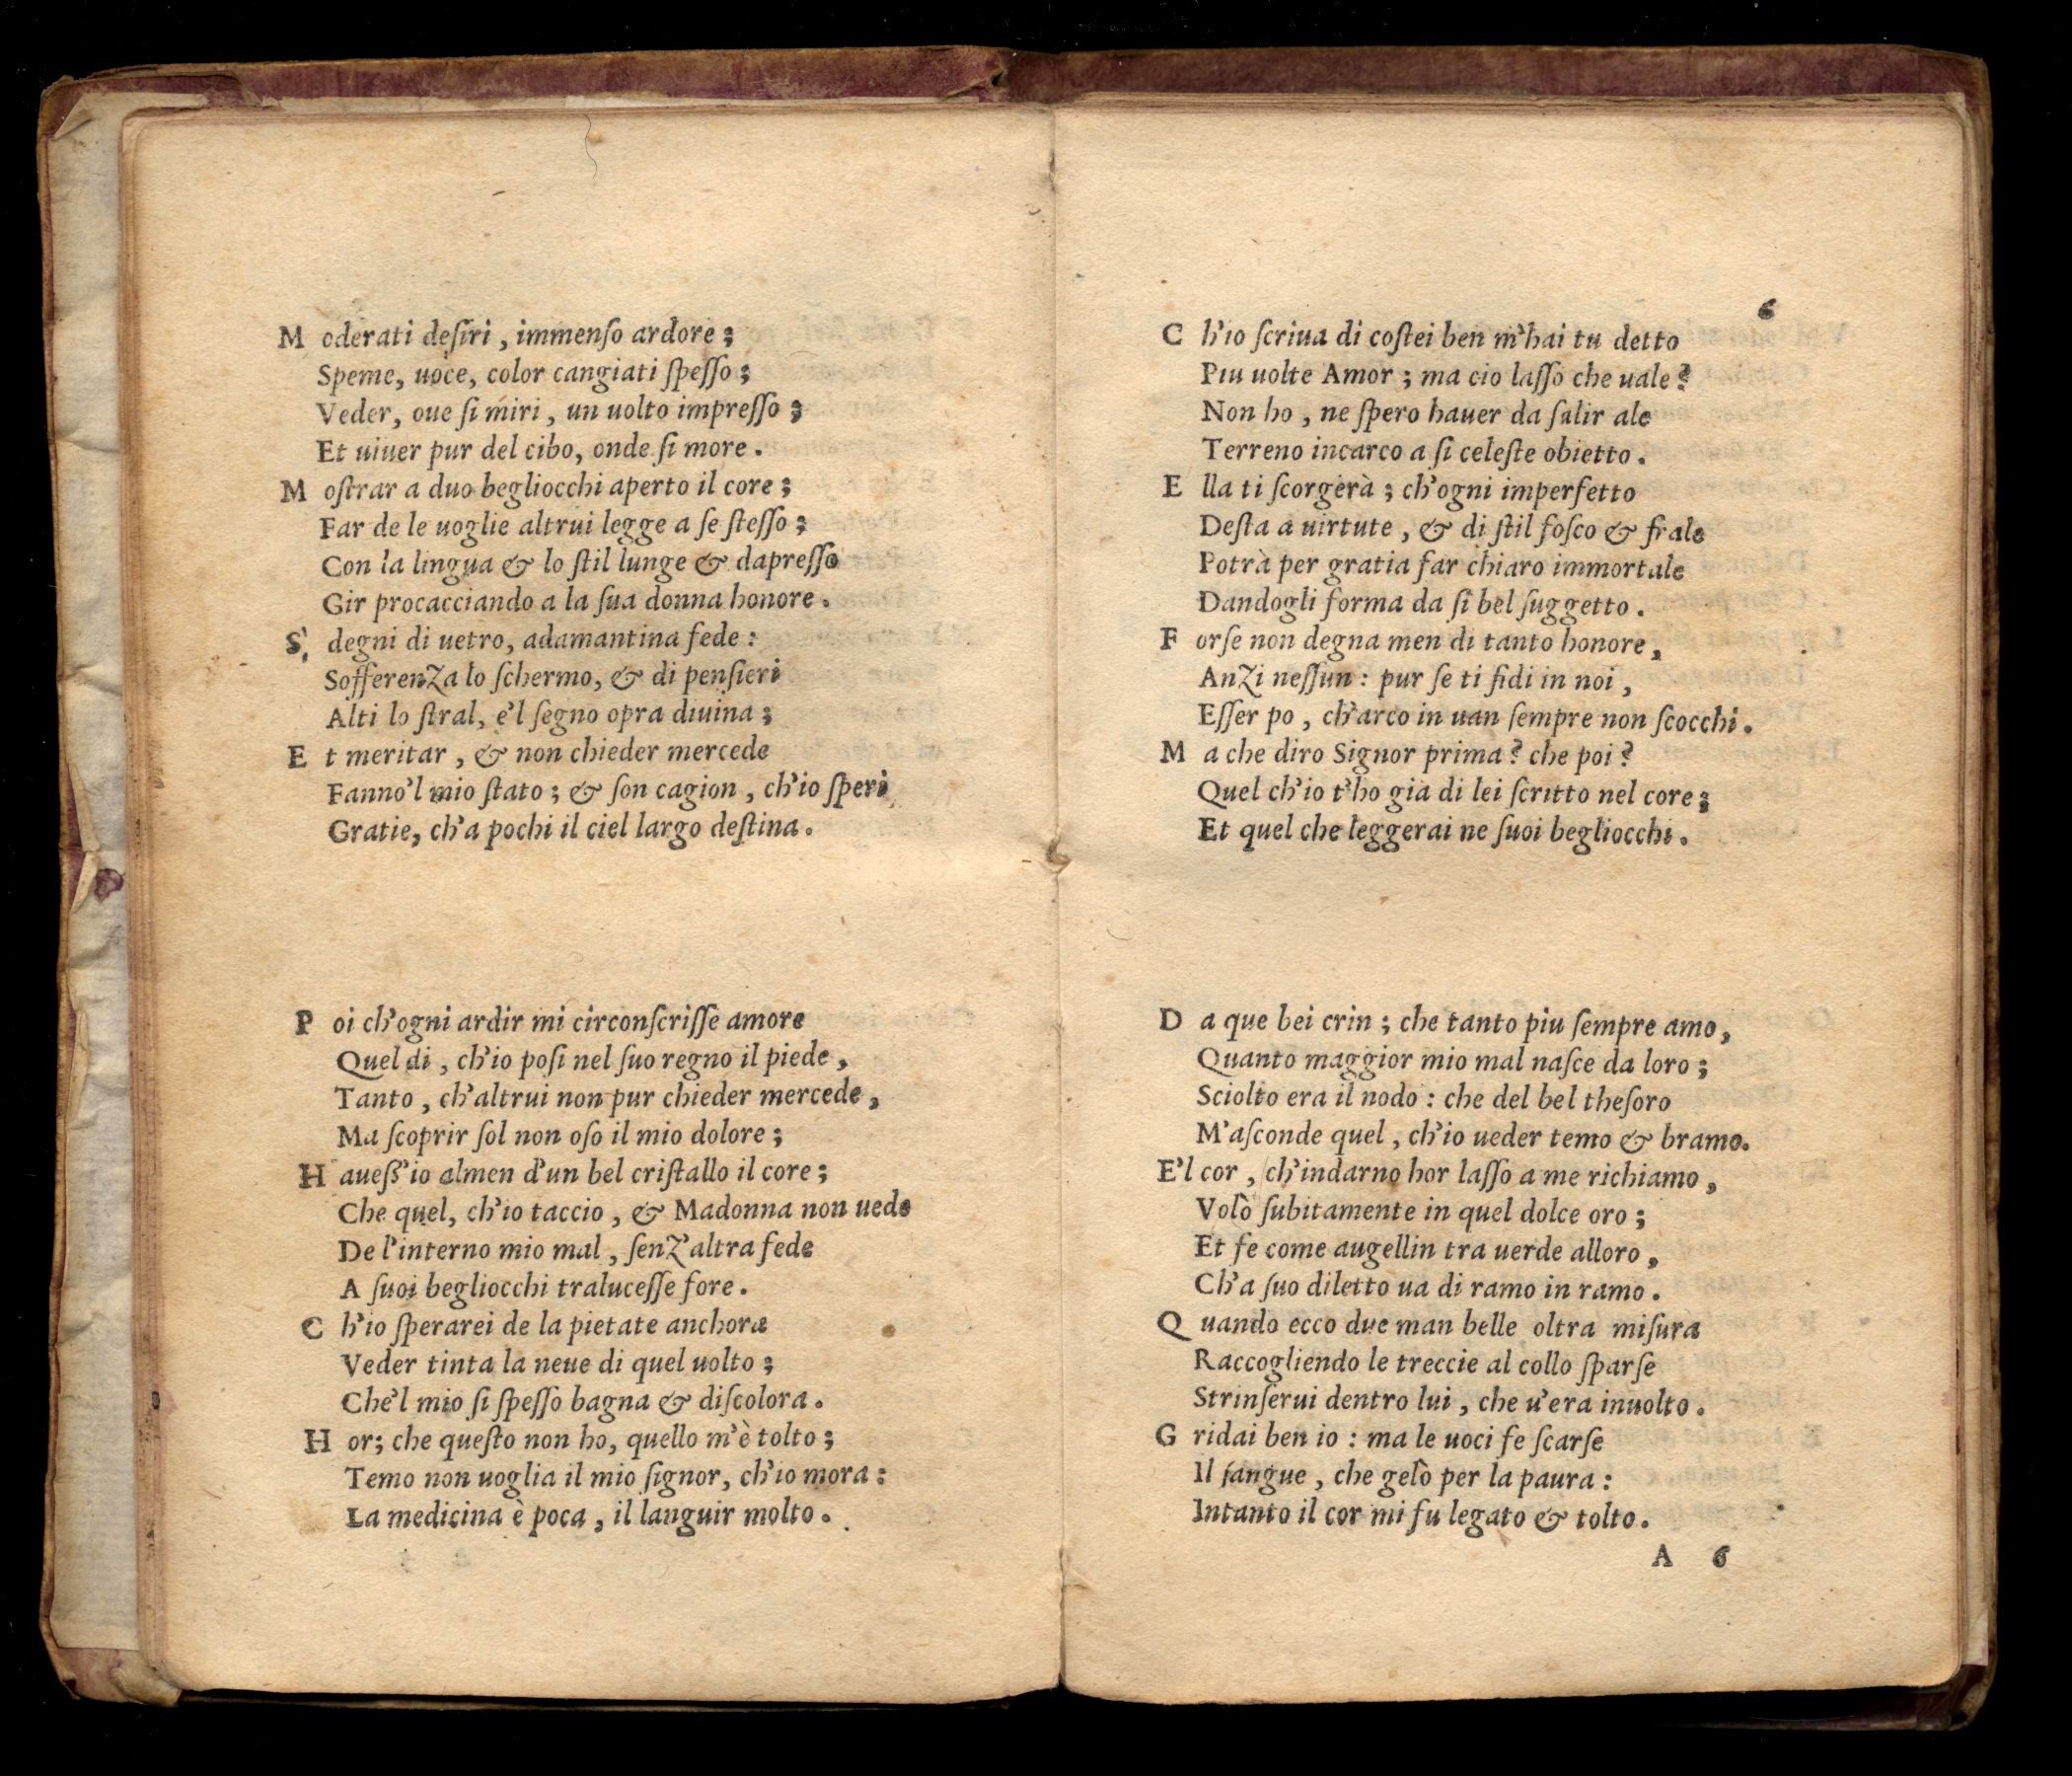 Moderati deſiri, immenſo ardore;
Speme, uoce, color cangiati ſpeſſo;
Veder, oue ſi miri, un uolto impreſſo;
Et uiuer pur del cibo, onde ſi more.
Moſtrar a duo begliocchi aperto il core;
Far de le uoglie altrui legge a ſe ſteſſo;
Con la lingua & lo ſtil lunge & dapreſſo
Gir procacciando a la ſua donna honore.
Sdegni di uetro, adamantina fede:
Sofferenza lo ſchermo, & di penſieri
Alti lo ſtral, e'l ſegno opra diuina;
Et meritar, & non chieder mercede
Fanno'l mio ſtato; & ſon cagion, ch'io ſperi
Gratie, ch'a pochi il ciel largo deſtina.
Poi ch'ogni ardir mi circonſcriſſe amore
Quel di, ch'io poſi nel ſuo regno il piede,
Tanto, ch'altrui non pur chieder mercede,
Ma ſcoprir ſol non oſo il mio dolore;
Haueß'io almen d'un bel criſtallo il core;
Che quel, ch'io taccio, & Madonna non uede
De l'interno mio mal, ſenz'altra fede
A ſuoi begliocchi traluceſſe fore.
Ch'io ſperarei de la pietate anchora
Veder tinta la neue di quel uolto;
Che'l mio ſi ſpeſſo bagna & diſcolora.
Hor; che queſto non ho, quello m'è tolto;
Temo non uoglia il mio ſignor, ch'io mora:
La medicina è poca, il languir molto.
6
Ch'io ſcriua di coſtei ben m'hai tu detto
Piu uolte Amor; ma cio laſſo che uale?
Non ho, ne ſpero hauer da ſalir ale
Terreno incarco a ſi celeſte obietto.
Ella ti ſcorgerà; ch'ogni imperfetto
Deſta a uirtute, & di ſtil foſco & frale
Potrà per gratia far chiaro immortale
Dandogli forma da ſi bel ſuggetto.
Forſe non degna men di tanto honore,
Anzi neſſun: pur ſe ti fidi in noi,
Eſſer po, ch'arco in uan ſempre non ſcocchi.
Ma che diro Signor prima? che poi?
Quel ch'io t'ho gia di lei ſcritto nel core;
Et quel che leggerai ne ſuoi begliocchi.
Da que bei crin; che tanto piu ſempre amo,
Quanto maggior mio mal naſce da loro;
Sciolto era il nodo: che del bel theſoro
M'aſconde quel, ch'io ueder temo & bramo.
E'l cor, ch'indarno hor laſſo a me richiamo,
Volò ſubitamente in quel dolce oro;
Et fe come augellin tra uerde alloro,
Ch'a ſuo diletto ua di ramo in ramo.
Quando ecco due man belle oltra miſura
Raccogliendo le treccie al collo ſparſe
Strinſerui dentro lui, che u'era inuolto.
Gridai ben io: ma le uoci fe ſcarſe
Il ſangue, che gelò per la paura:
Intanto il cor mi fu legato & tolto.
A 6